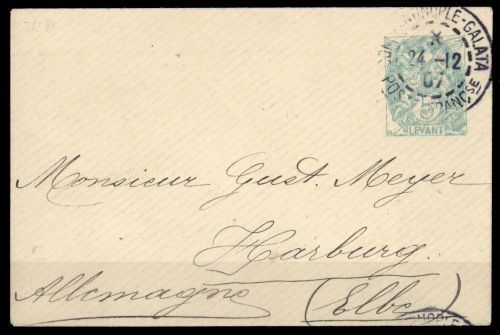 CONSTANTINOPLE-GALATA
24 -12
07
POSTE FRANCSE
5
LEVANT
Monsieur Gust. Meyer
Harburg.
Allemagne (Elbe
NOPLE